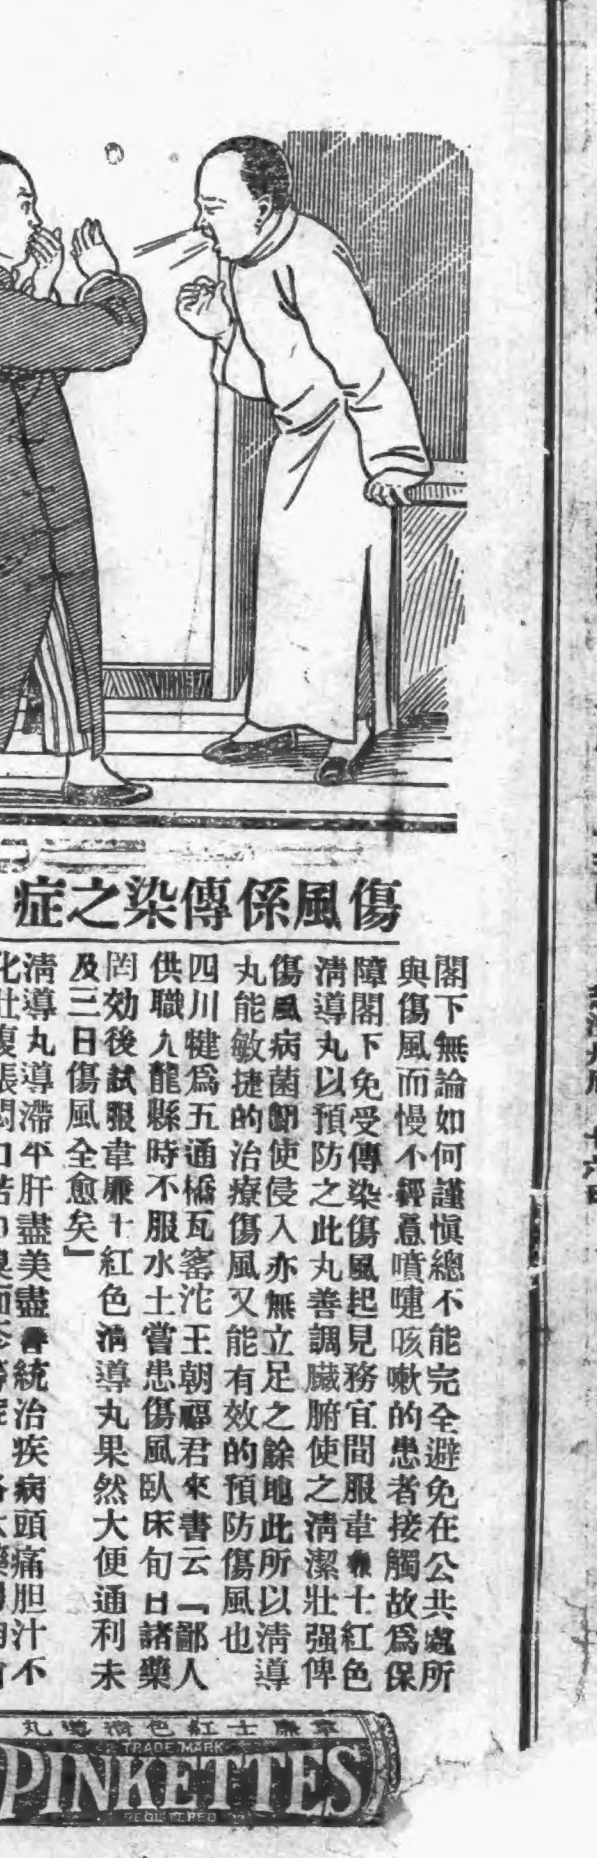 傷風係傳染之症
閣下無論如何謹慎總不能完全避免在公共處所
與傷風而慢不經意噴嚏咳嗽的患者接觸故爲保
障閣下免受傳染傷風起見務宜間服韋廉士紅色
淸導丸以預防之此丸善調臟腑使之淸潔壯强俾
傷風病菌卽使侵入亦無立足之餘地此所以淸導
丸能敏捷的治療傷風又能有效的預防傷風也
四川犍爲五通橋瓦窰沱王朝福君來書云『鄙人
供職九龍縣時不服水土嘗患傷風臥床旬日諸藥
罔効後試服韋廉士紅色淸導丸果然大便通利未
及三日傷風全愈矣』
淸導丸導滯平肝盡美盡善統治疾病頭痛胆汁不
韋廉士紅色淸導丸
TRADE MARK
PINKETTES
REGISTERED